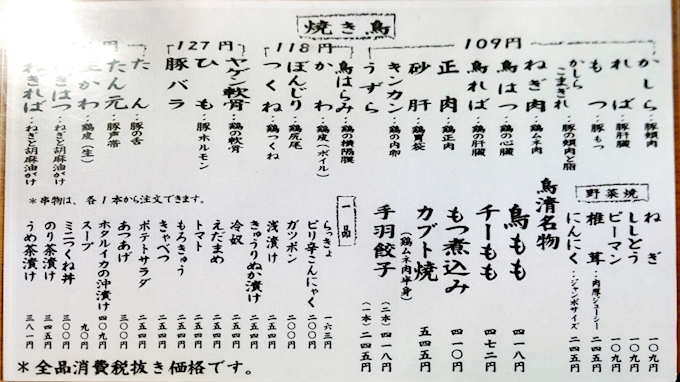 焼き鳥
109円
かしら‥豚頬肉
れば‥豚肝臓
もつ‥豚もつ
かしらこまぎれ‥豚の頬肉と脂
ねぎ肉‥鶏ムネ肉
鳥はつ‥鶏の心臓
鳥れば‥鶏の肝臓
正肉‥鶏正肉
砂肝‥鶏胃袋
キンカン‥鶏の内卵
うずら
118円
鳥はらみ‥鶏の横隔膜
かわ‥鶏皮(ボイル)
ぼんじり‥鶏尻尾
つくね‥鶏つくね
127円
ヤゲン軟骨‥鶏の軟骨
ひも‥豚ホルモン
豚バラ
円
たん‥豚の舌
たん元‥豚声帯
生かわ‥鶏皮(生)
ねぎはつ‥ねぎと胡麻油がけ
ねぎれば‥ねぎと胡麻油がけ
*串物は、各1本から注文できます。
野菜焼
ねぎ 一〇九円
ししとう 一〇九円
ピーマン 一〇九円
椎茸‥肉厚ジューシー 二四五円
にんにく‥ジャンボサイズ 二四五円
鳥清名物
鳥もも 四一八円
チーもも 四七二円
もつ煮込み 四一〇円
カブト焼 五四五円
(鶏ムネ肉半身)
手羽餃子 (二本)四一八円
(一本)二四五円
一品
らっきょ 一六三円
ピリ辛こんにゃく 二〇〇円
ガツポン 二〇〇円
浅漬け 二五四円
きゅうりぬか漬け 二五四円
冷奴 二五四円
えだまめ 二五四円
トマト 二五四円
もろきゅう 二五四円
きゃべつ 二五四円
ポテトサラダ 二五四円
あつあげ 三〇〇円
ホタルイカの沖漬け 四〇九円
スープ 九〇円
ミニつくね丼 三〇〇円
のり茶漬け 三四五円
うめ茶漬け 三八一円
*全品消費税抜き価格です。